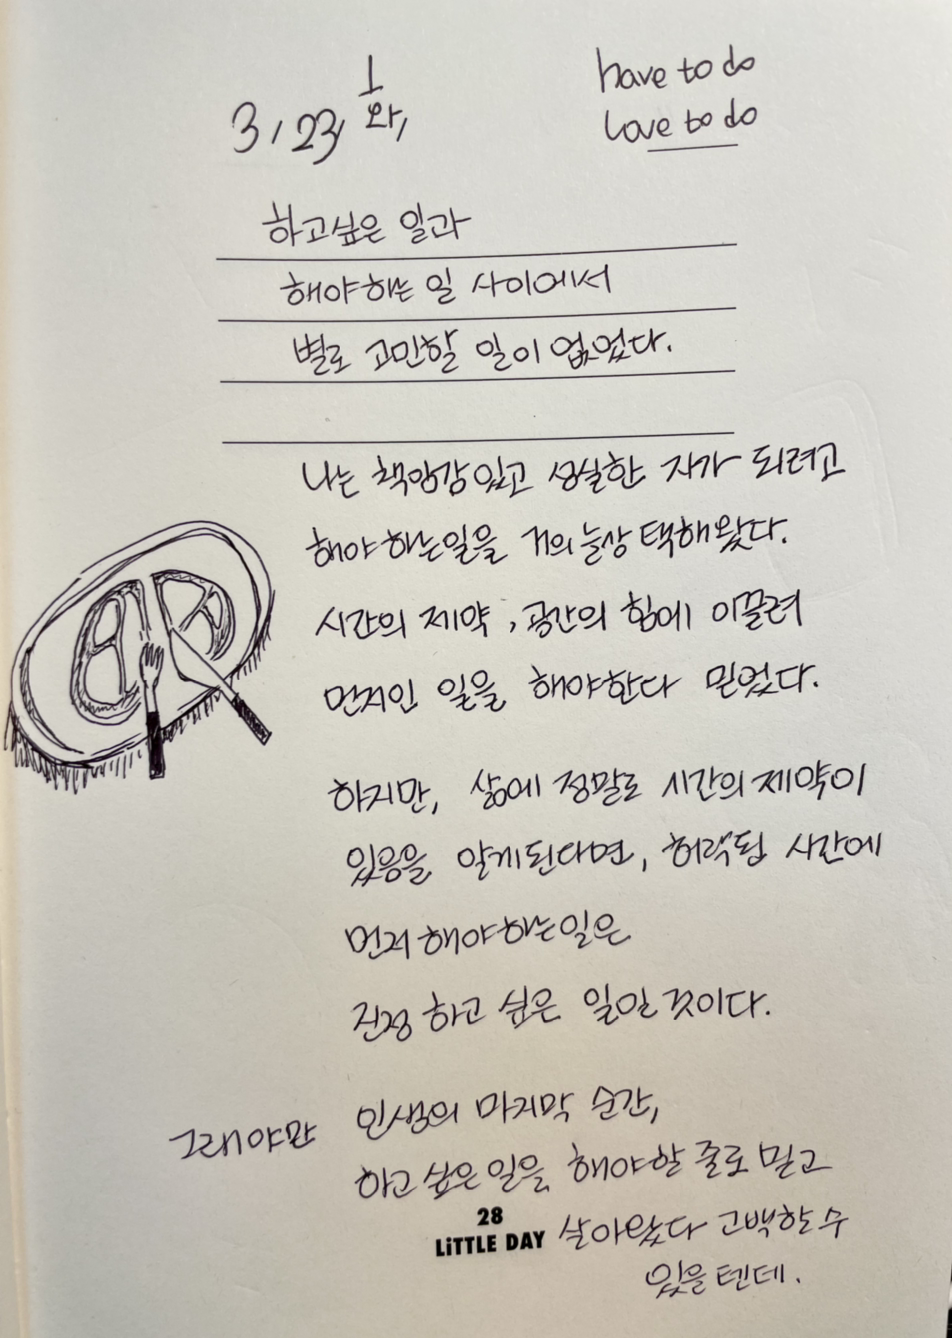 3, 23, 화,
have to do
Love to do
하고싶은 일과
해야하는 일 사이에서
별로 고민할 일이 없었다.
나는 책임감있고 성실한 자가 되려고
해야 하는일을 거의 늘상 택해왔다.
시간의 제약, 공간의 힘에 이끌려
먼저인 일을 해야한다 믿었다.
하지만, 삶에 정말로 시간의 제약이
있음을 알게된다면, 허락된 시간에
먼저 해야하는일은
진정 하고 싶은 일일 것이다.
그래야만 인생의 마지막 순간,
하고 싶은 일을 해야할 줄로 믿고
살아왔다 고백할 수
있을텐데.
28
LiTTLE DAY